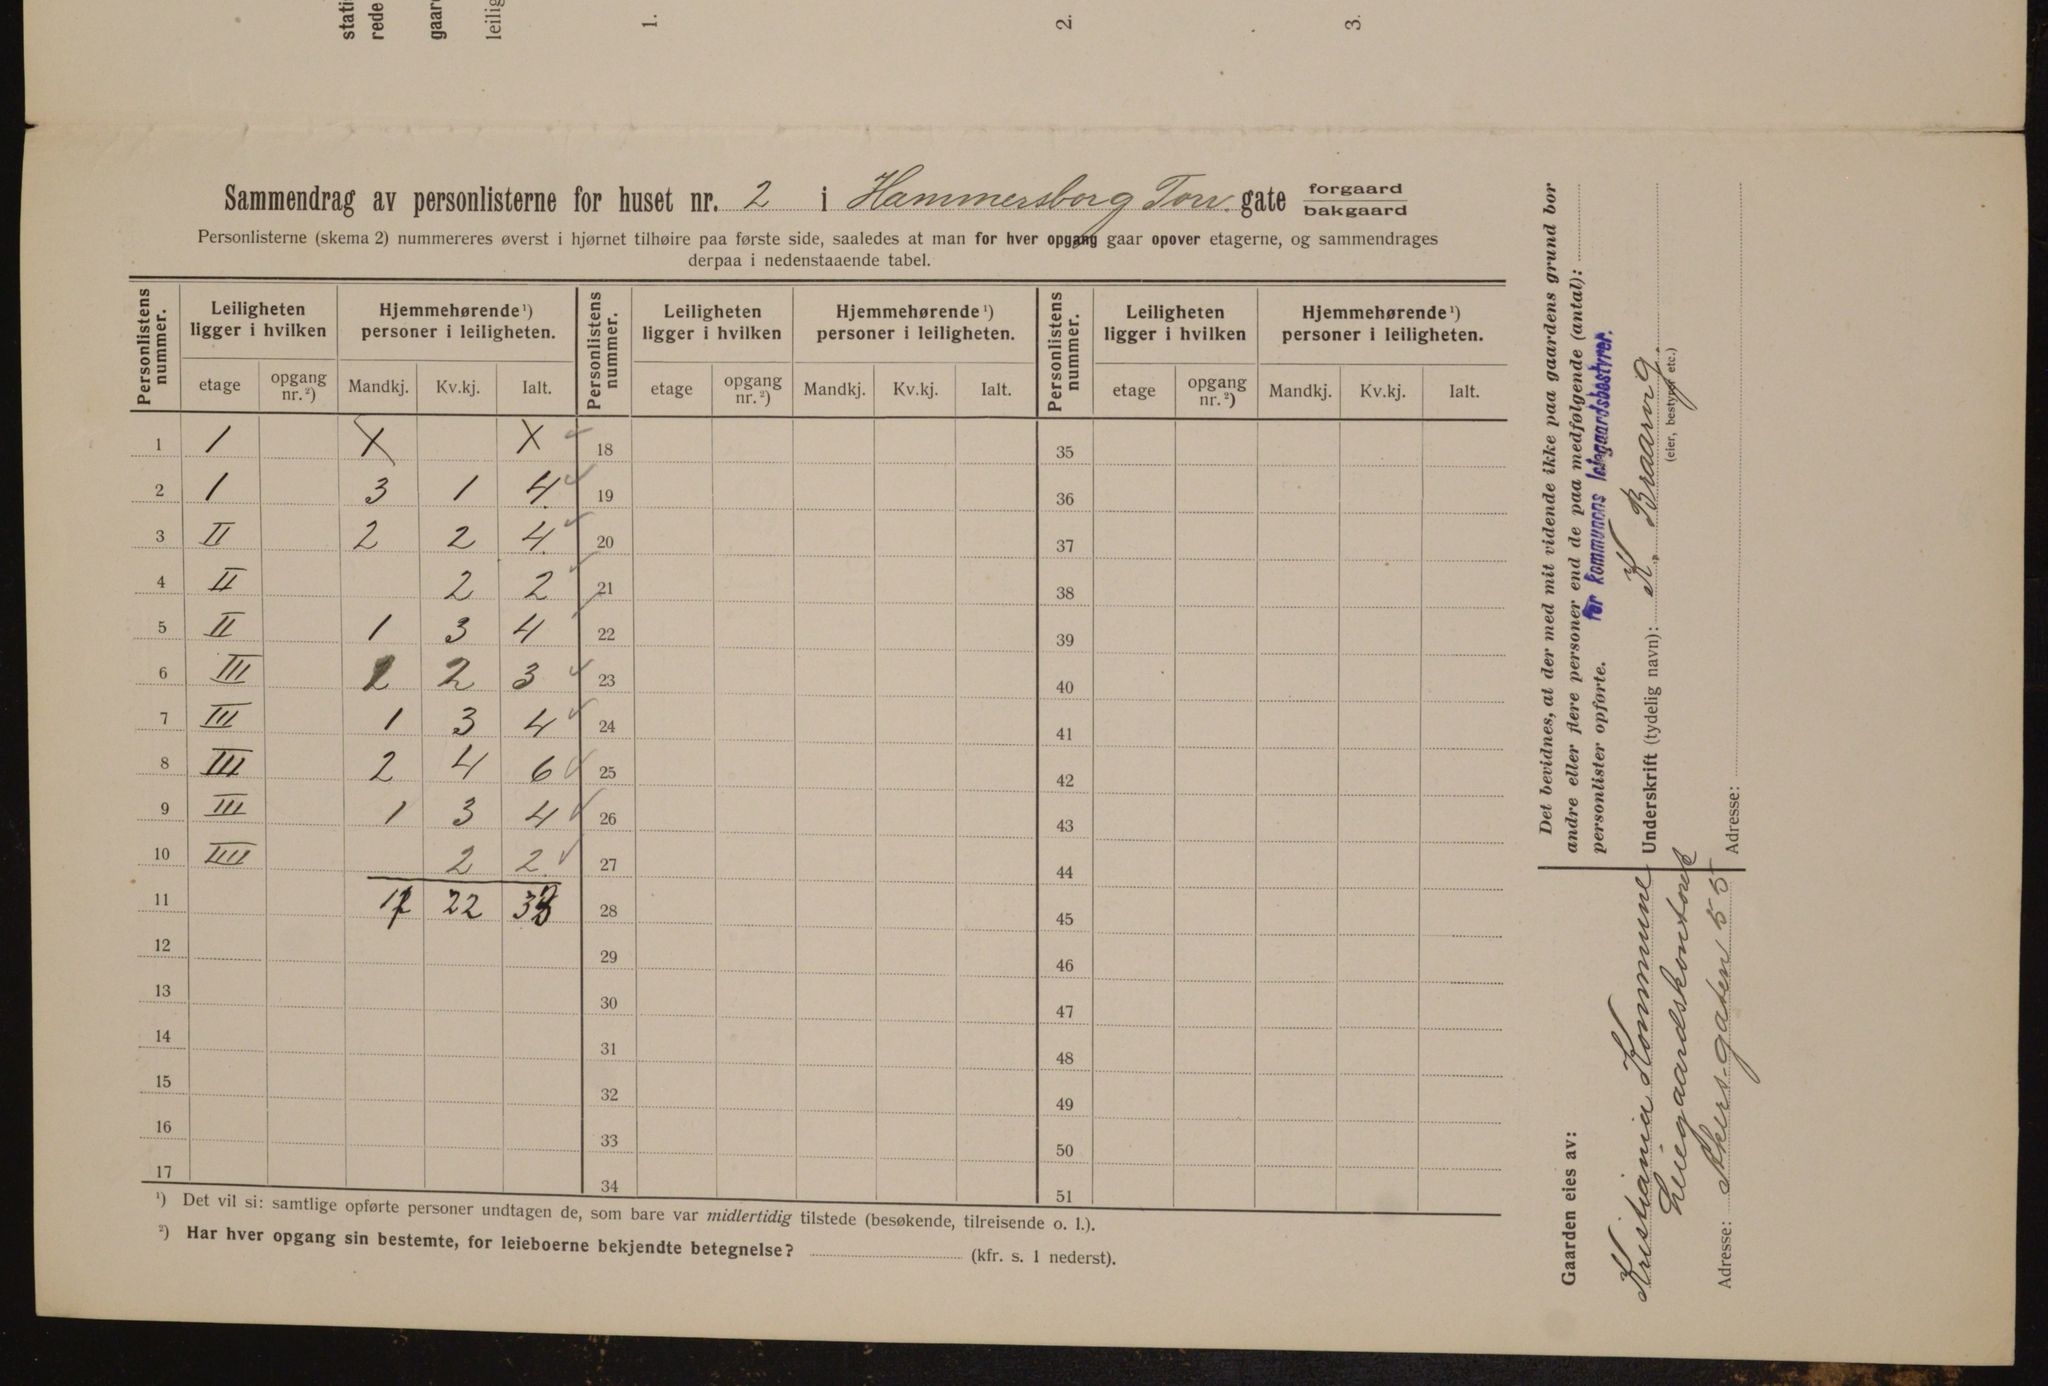 1.
2.
3.
Sammendrag av personlisterne for huset nr. 2 i Hammersborg Torv. gate forgaard bakgaard
Personlisterne (skema 2) nummereres øverst i hjørnet tilhøire paa første side, saaledes at man for hver opgang gaar opover etagerne, og sammendrages
derpaa i nedenstaaende tabel.
Personlistens nummer. Leiligheten ligger i hvilken Hjemmehørende ¹) personer i leiligheten. Personlistens nummer. Leiligheten ligger i hvilken Hjemmehørende ¹) personer i leiligheten. Personlistens nummer. Leiligheten ligger i hvilken Hjemmehørende ¹) personer i leiligheten.
etage opgang nr. ²) Mandkj. Kv.kj. Ialt. etage opgang nr. ²) Mandkj. Kv.kj. Ialt. etage opgang nr. ²) Mandkj. Kv.kj. Ialt.
1 I X X 18 35
2 I 3 1 4 19 36
3 II 2 2 4 20 37
4 II 2 2 21 38
5 II 1 3 4 22 39
6 III 2 3 23 40
7 III 1 3 4 24 41
8 III 2 4 6 25 42
9 III 1 3 4 26 43
10 IIII 2 2 27 44
11 22 28 45
12 29 46
13 30 47
14 31 48
15 32 49
16 33 50
17 34 51
¹) Det vil si: samtlige opførte personer undtagen de, som bare var midlertidig tilstede (besøkende, tilreisende o. l.).
²) Har hver opgang sin bestemte, for leieboerne bekjendte betegnelse? (kfr. s. 1 nederst).
Det bevidnes, at der med mit vidende ikke paa gaardens grund bor
andre eller flere personer end de paa medfølgende (antal):
personlister opførte. for kommunens leiegaardsbestyrer.
Underskrift (tydelig navn): K. Braarvig.
(eier, bestyrer etc.)
Adresse:
Gaarden eies av:
Kristiania Kommune
Leiegaardskontoret
Adresse: Akersgaten 55